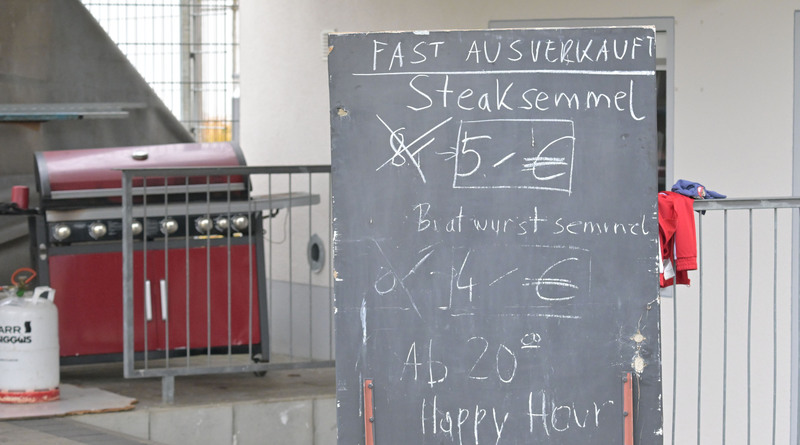 FAST AUSVERKAUFT
Steaksemmel
8.- 5.-€
Bratwurstsemmel
4-€
Ab 20⁰⁰
Happy Hour